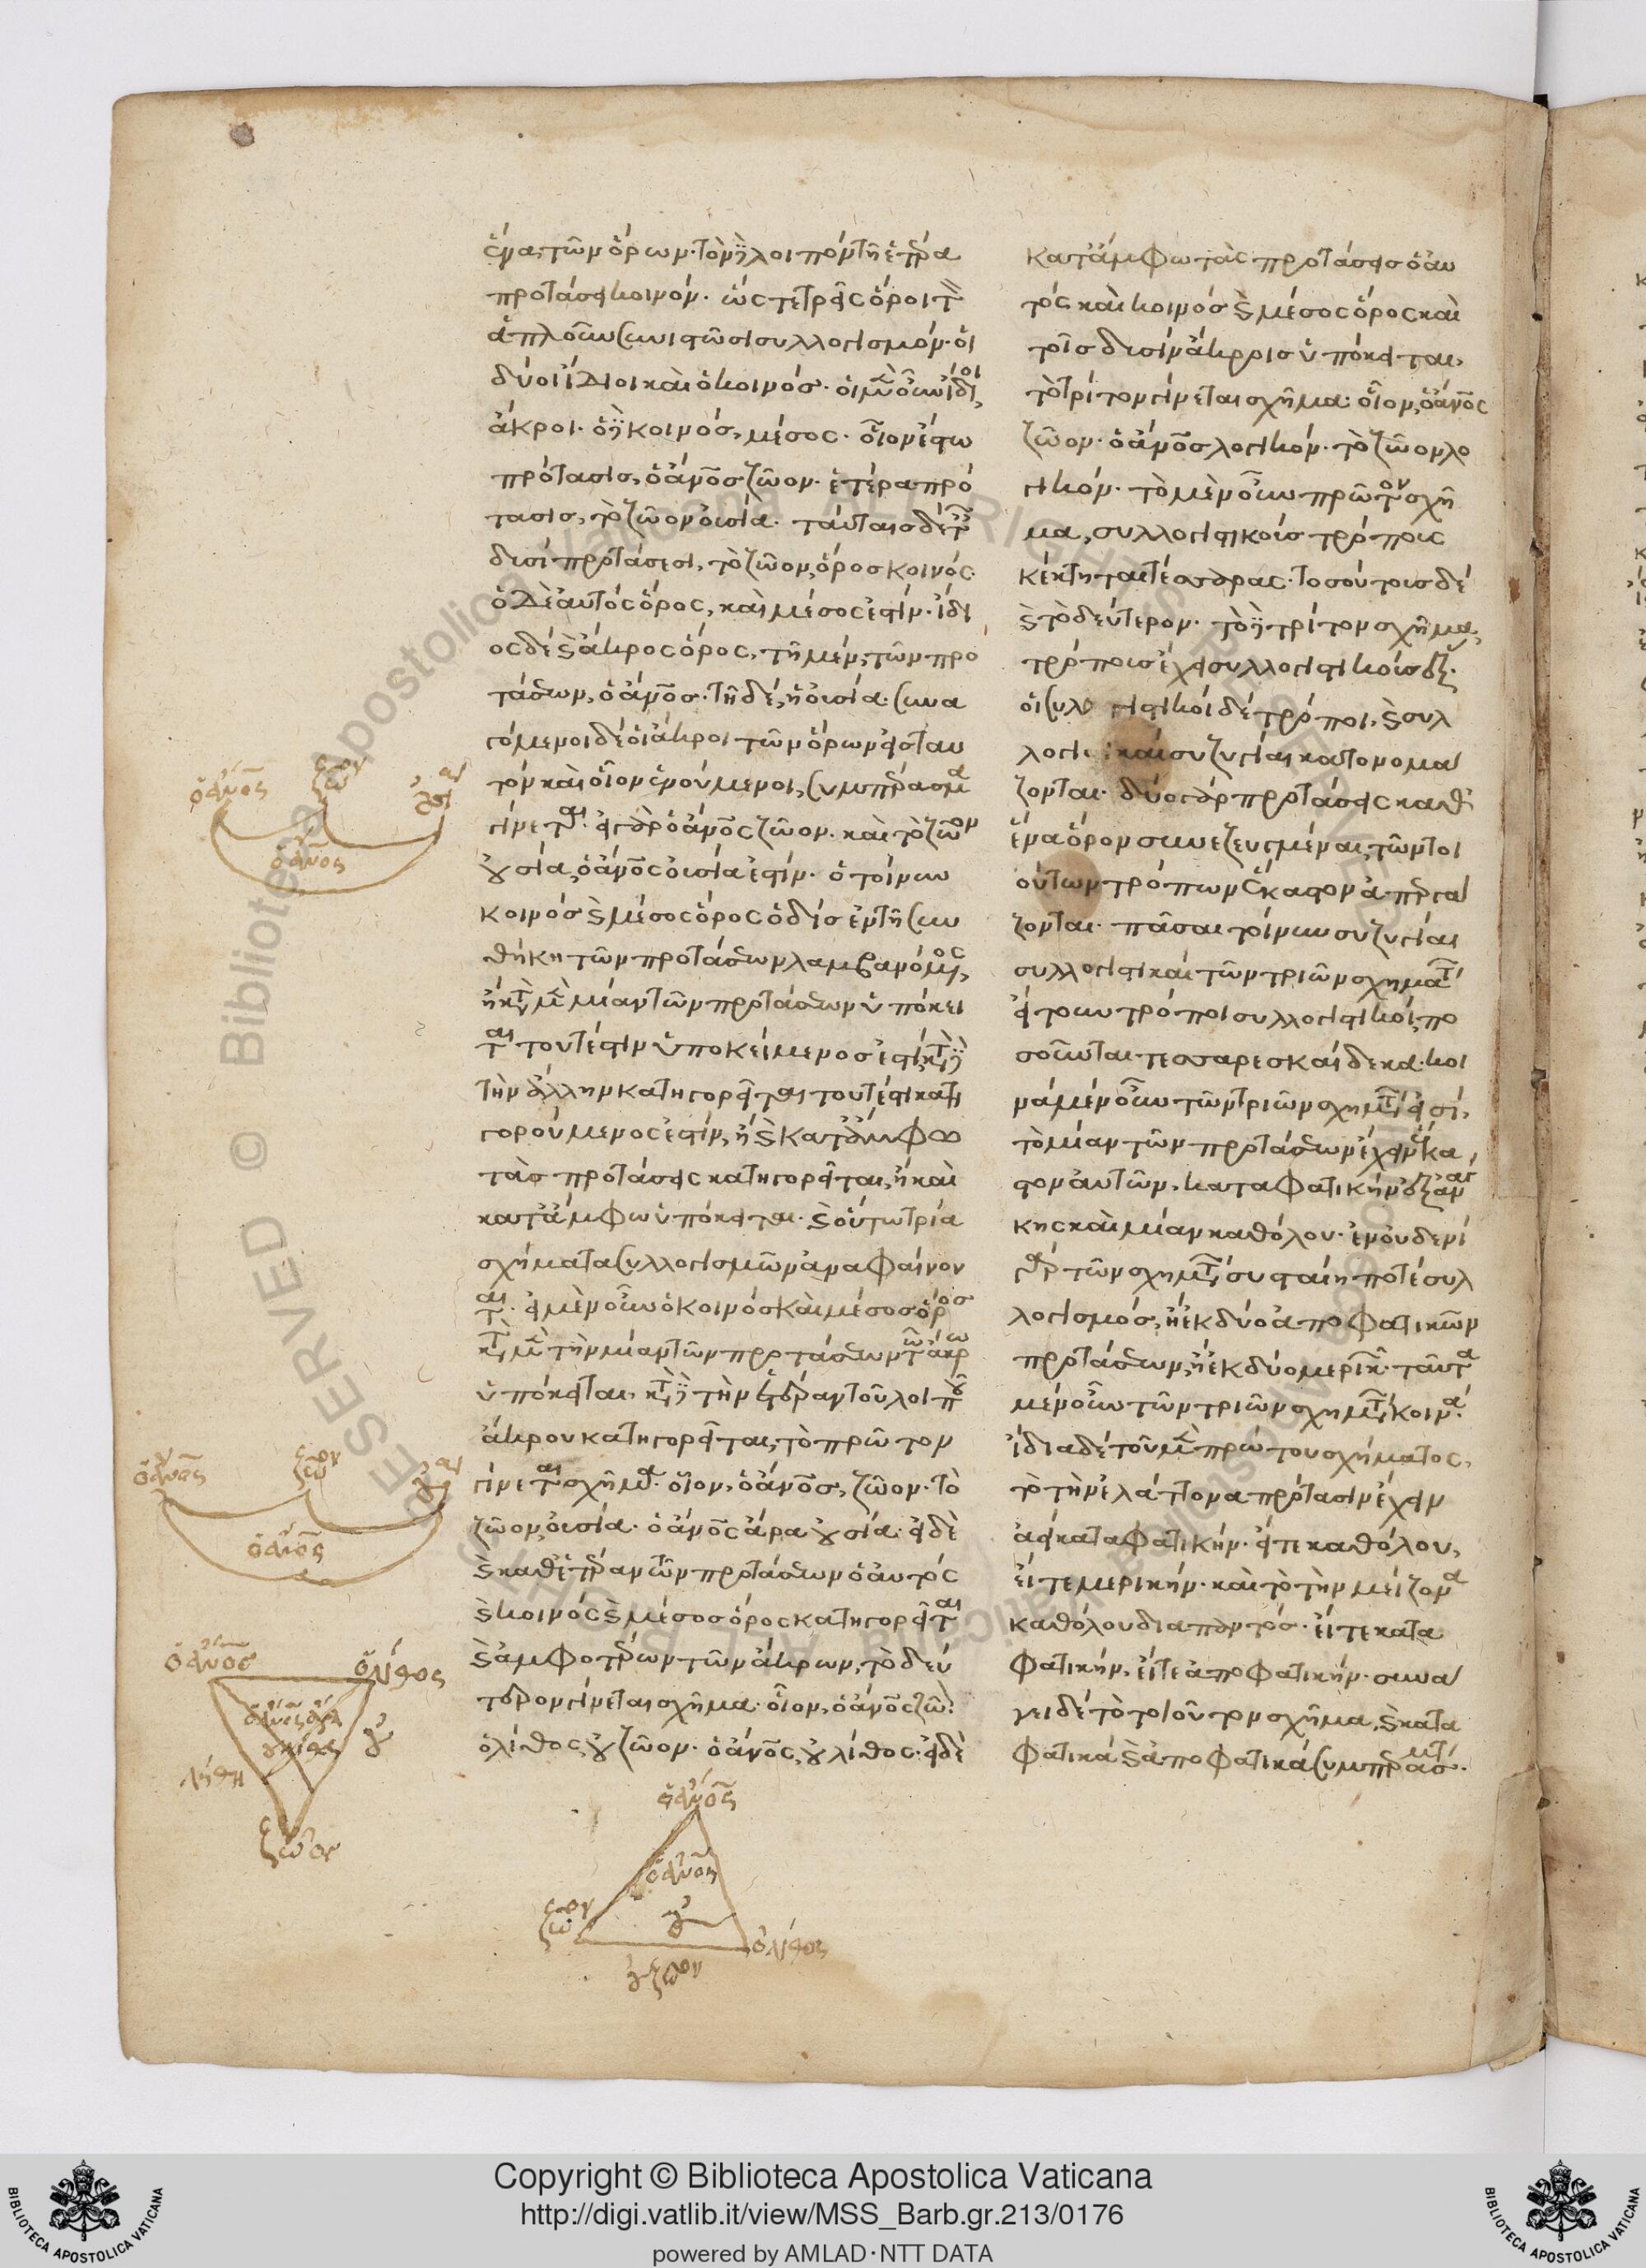 ἕνα τῶν ὅρων· τὸν δὲ λοιπὸν τῇ ἑτέρᾳ
προτάσει κοινόν· ὥς τε τρεῖς ὅροι τὸν
ἁπλοῦν συνιστῶσι συλλογισμόν· οἱ
δύο ἴδιοι καὶ ὁ κοινός· οἱ μὲν οὖν ἴδιοι,
ἄκροι· ὁ δὲ κοινός, μέσος· οἷον ἔστω
πρότασις, ὁ ἄνος ζῶον· ἑτέρα πρό
τασις, τὸ ζῶον οὐσία· ταύταις δὲ ταῖς
δυσὶ προτάσεσι, τὸ ζῶον, ὅρος κοινός·
ὁ δὲ αὐτὸς ὅρος, καὶ μέσος ἐστίν· ἴδι
ος δὲ καὶ ἄκρος ὅρος, τῇ μὲν τῶν προ
τάσεων, ὁ ἄνος· τῇ δέ, ἡ οὐσία· συνα
γόμενοι δὲ οἱ ἄκροι τῶν ὅρων εἰς ταυ
τὸν καὶ οἷον ἑνούμενοι, συμπέρασμα
γίνεται· εἰ γὰρ ὁ ἄνος ζῶον· καὶ τὸ ζῶον
οὐσία, ὁ ἄνος οὐσία ἐστίν· ὁ τοίνυν
κοινὸς καὶ μέσος ὅρος ὁ δὶς ἐν τῇ συν
θήκῃ τῶν προτάσεων λαμβανόμενος,
ἢ κατὰ μὲν μίαν τῶν προτάσεων ὑπόκει
ται τουτέστιν ὑποκείμενος ἐστί, κατὰ δὲ
τὴν ἄλλην κατηγορεῖται τουτέστι κατη
γορούμενος ἐστίν, ἢ καὶ κατ' ἄμφω
τὰς προτάσεις κατηγορεῖται, ἢ καὶ
κατ' ἄμφω ὑπόκειται· καὶ οὕτω τρία
σχήματα συλλογισμῶν ἀναφαίνον
ται· εἰ μὲν οὖν ὁ κοινὸς καὶ μέσος ὅρος
κατὰ μὲν τὴν μίαν τῶν προτάσεων τῶ ἄκρω
ὑπόκειται, κατὰ δὲ τὴν ἑτέραν τοῦ λοιποῦ
ἄκρου κατηγορεῖται, τὸ πρῶτον
γίνεται σχῆμα· οἷον, ὁ ἄνος, ζῶον· τὸ
ζῶον, οὐσία· ὁ ἄνος ἄρα οὐσία· εἰ δὲ
καὶ καθ' ἑτέραν τῶν προτάσεων ὁ αὐτὸς
καὶ κοινὸς καὶ μέσος ὅρος κατηγορεῖται
καὶ ἀμφοτέρων τῶν ἄκρων, τὸ δεύ
τερον γίνεται σχῆμα· οἷον, ὁ ἄνος ζῶον·
ὁ λίθος οὐ ζῶον· ὁ ἄνος οὐ λίθος· εἰ δὲ
κατ' ἄμφω τὰς προτάσεις ὁ αὐ
τὸς καὶ κοινὸς καὶ μέσος ὅρος καὶ
τοῖς δυσὶν ἄκροις ὑπόκειται,
τὸ τρίτον γίνεται σχῆμα· οἷον, ὁ ἄνος
ζῶον· ὁ ἄνος λογικόν· τὸ ζῶον λο
γικόν· τὸ μὲν οὖν πρῶτον σχῆ
μα, συλλογιστικοῖς τρόποις
κέκτηται τέσσαρας· τοσούτοις δὲ
καὶ τὸ δεύτερον· τὸ δὲ τρίτον σχῆμα,
τρόποις ἔχει συλλογιστικοῖς ἕξ·
οἱ συλλογιστικοὶ δὲ τρόποι, καὶ συλ
λογι καὶ συζυγίαι κατονομά
ζονται· δύο γὰρ προτάσεις καθ'
ἕνα ὅρον συνεζευγμέναι, τῶν τοι
ούτων τρόπων ἕκαστον ἀπεργά
ζονται· πᾶσαι τοίνυν συζυγίαι
συλλογιστικαὶ τῶν τριῶν σχημάτων
ἤτουν τρόποι συλλογιστικοί, πο
σοῦνται τεσσαρεσκαίδεκα· κοι
νὰ μὲν οὖν τῶν τριῶν σχημάτων εἰσί,
τὸ μίαν τῶν προτάσεων ἔχειν ἕκα
στον αὐτῶν, καταφατικὴν ἐξ ἀνάγ
κης καὶ μίαν καθόλου· ἐν οὐδενὶ
γὰρ τῶν σχημάτων συσταίη ποτὲ συλ
λογισμός, ἢ ἐκ δύο ἀποφατικῶν
προτάσεων, ἢ ἐκ δύο μερικῶν· ταῦτα
μὲν οὖν τῶν τριῶν σχημάτων κοινά·
ἴδια δὲ τοῦ μὲν πρώτου σχήματος,
τὸ τὴν ἐλάττονα πρότασιν ἔχειν
ἀεὶ καταφατικήν· εἴτε καθόλου,
εἴτε μερικήν· καὶ τὸ τὴν μείζονα
καθόλου διαπαντός· εἴτε κατα
φατικήν, εἴτε ἀποφατικήν· συνά
γει δὲ τὸ τοιοῦτον σχῆμα, καὶ κατα
φατικὰ καὶ ἀποφατικὰ συμπεράσματα·
ὁ ἄνος
ζῶον
ὁ ἄνος
ὁ ἄνος
ζῶον
ὁ ἄνος
ὁ ἄνος
ὁ λίθος
ζῶον
ὁ ἄνος
ὁ ἄνος
ζῶον
οὐ
ὁ λίθος
οὐ ζῶον
© Biblioteca Apostolica Vaticana ALL RIGHTS RESERVED
Copyright © Biblioteca Apostolica Vaticana
http://digi.vatlib.it/view/MSS_Barb.gr.213/0176
powered by AMLAD·NTT DATA
BIBLIOTECA APOSTOLICA VATICANA
BIBLIOTECA APOSTOLICA VATICANA